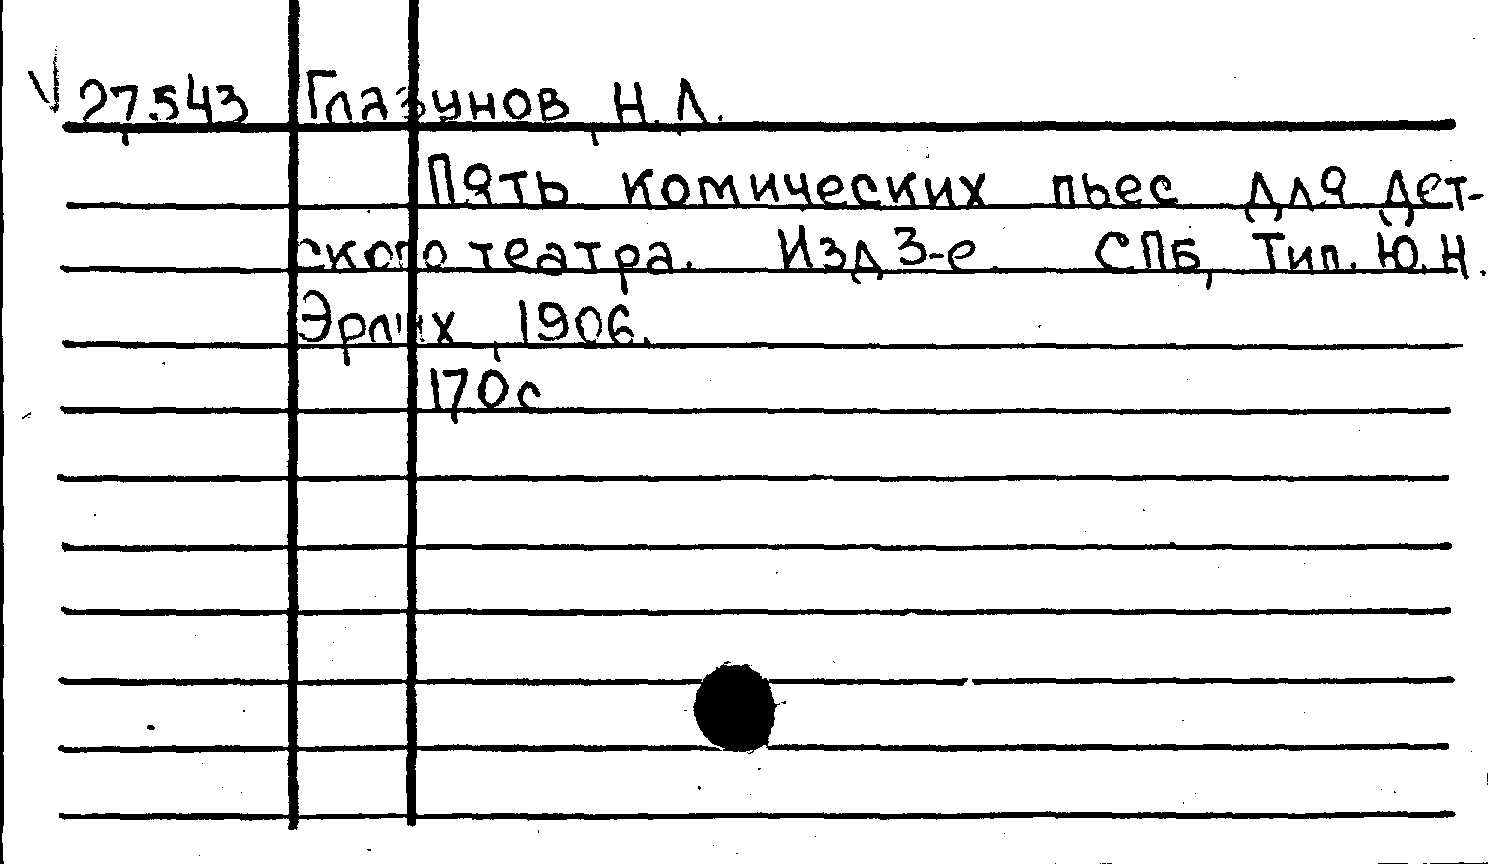 27,543 Глазунов, Н. Л.
Пять комических пьес для дет-
ского театра. Изд 3-е. СПБ, Тип. Ю. Н.
Эрлих, 1906.
170 с